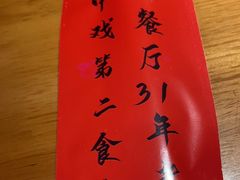 餐厅31年
中戏第二食